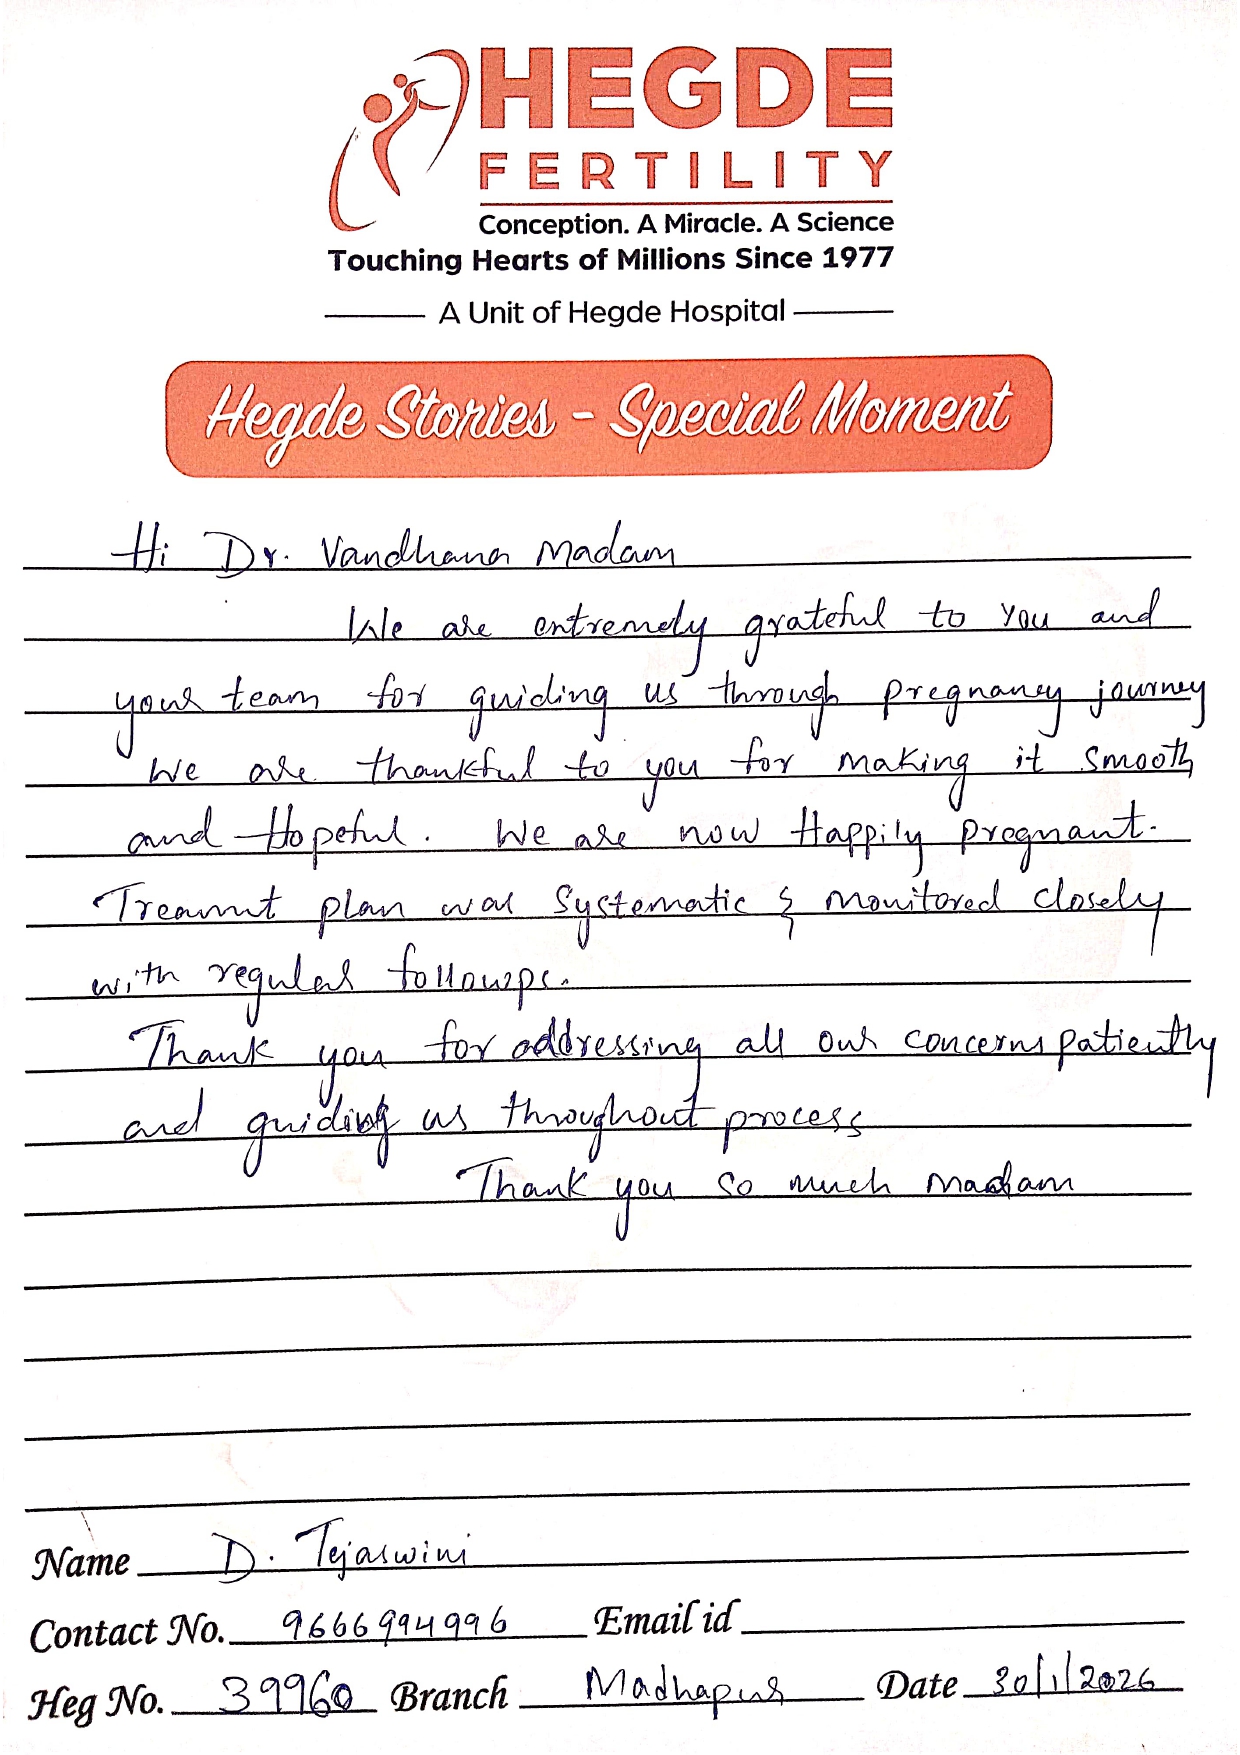 HEGDE
FERTILITY
Conception. A Miracle. A Science
Touching Hearts of Millions Since 1977
A Unit of Hegde Hospital
Hegde Stories - Special Moment
Hi Dr. Vandhana Madam
We are entremely grateful to you and
your team for guiding us through pregnancy journey
We are thankful to you for making it smooth
and Hopeful. We are now Happily pregnant.
Treamnt plan was Systematic & monitored closely
with regular followps.
Thank you for addressing all our concerns patiently
and guiding us throughout process
Thank you so much madam
Name D. Tejaswini
Contact No. 9666994996 Email id
Heg No. 39960 Branch Madhapur Date 30/1/2026